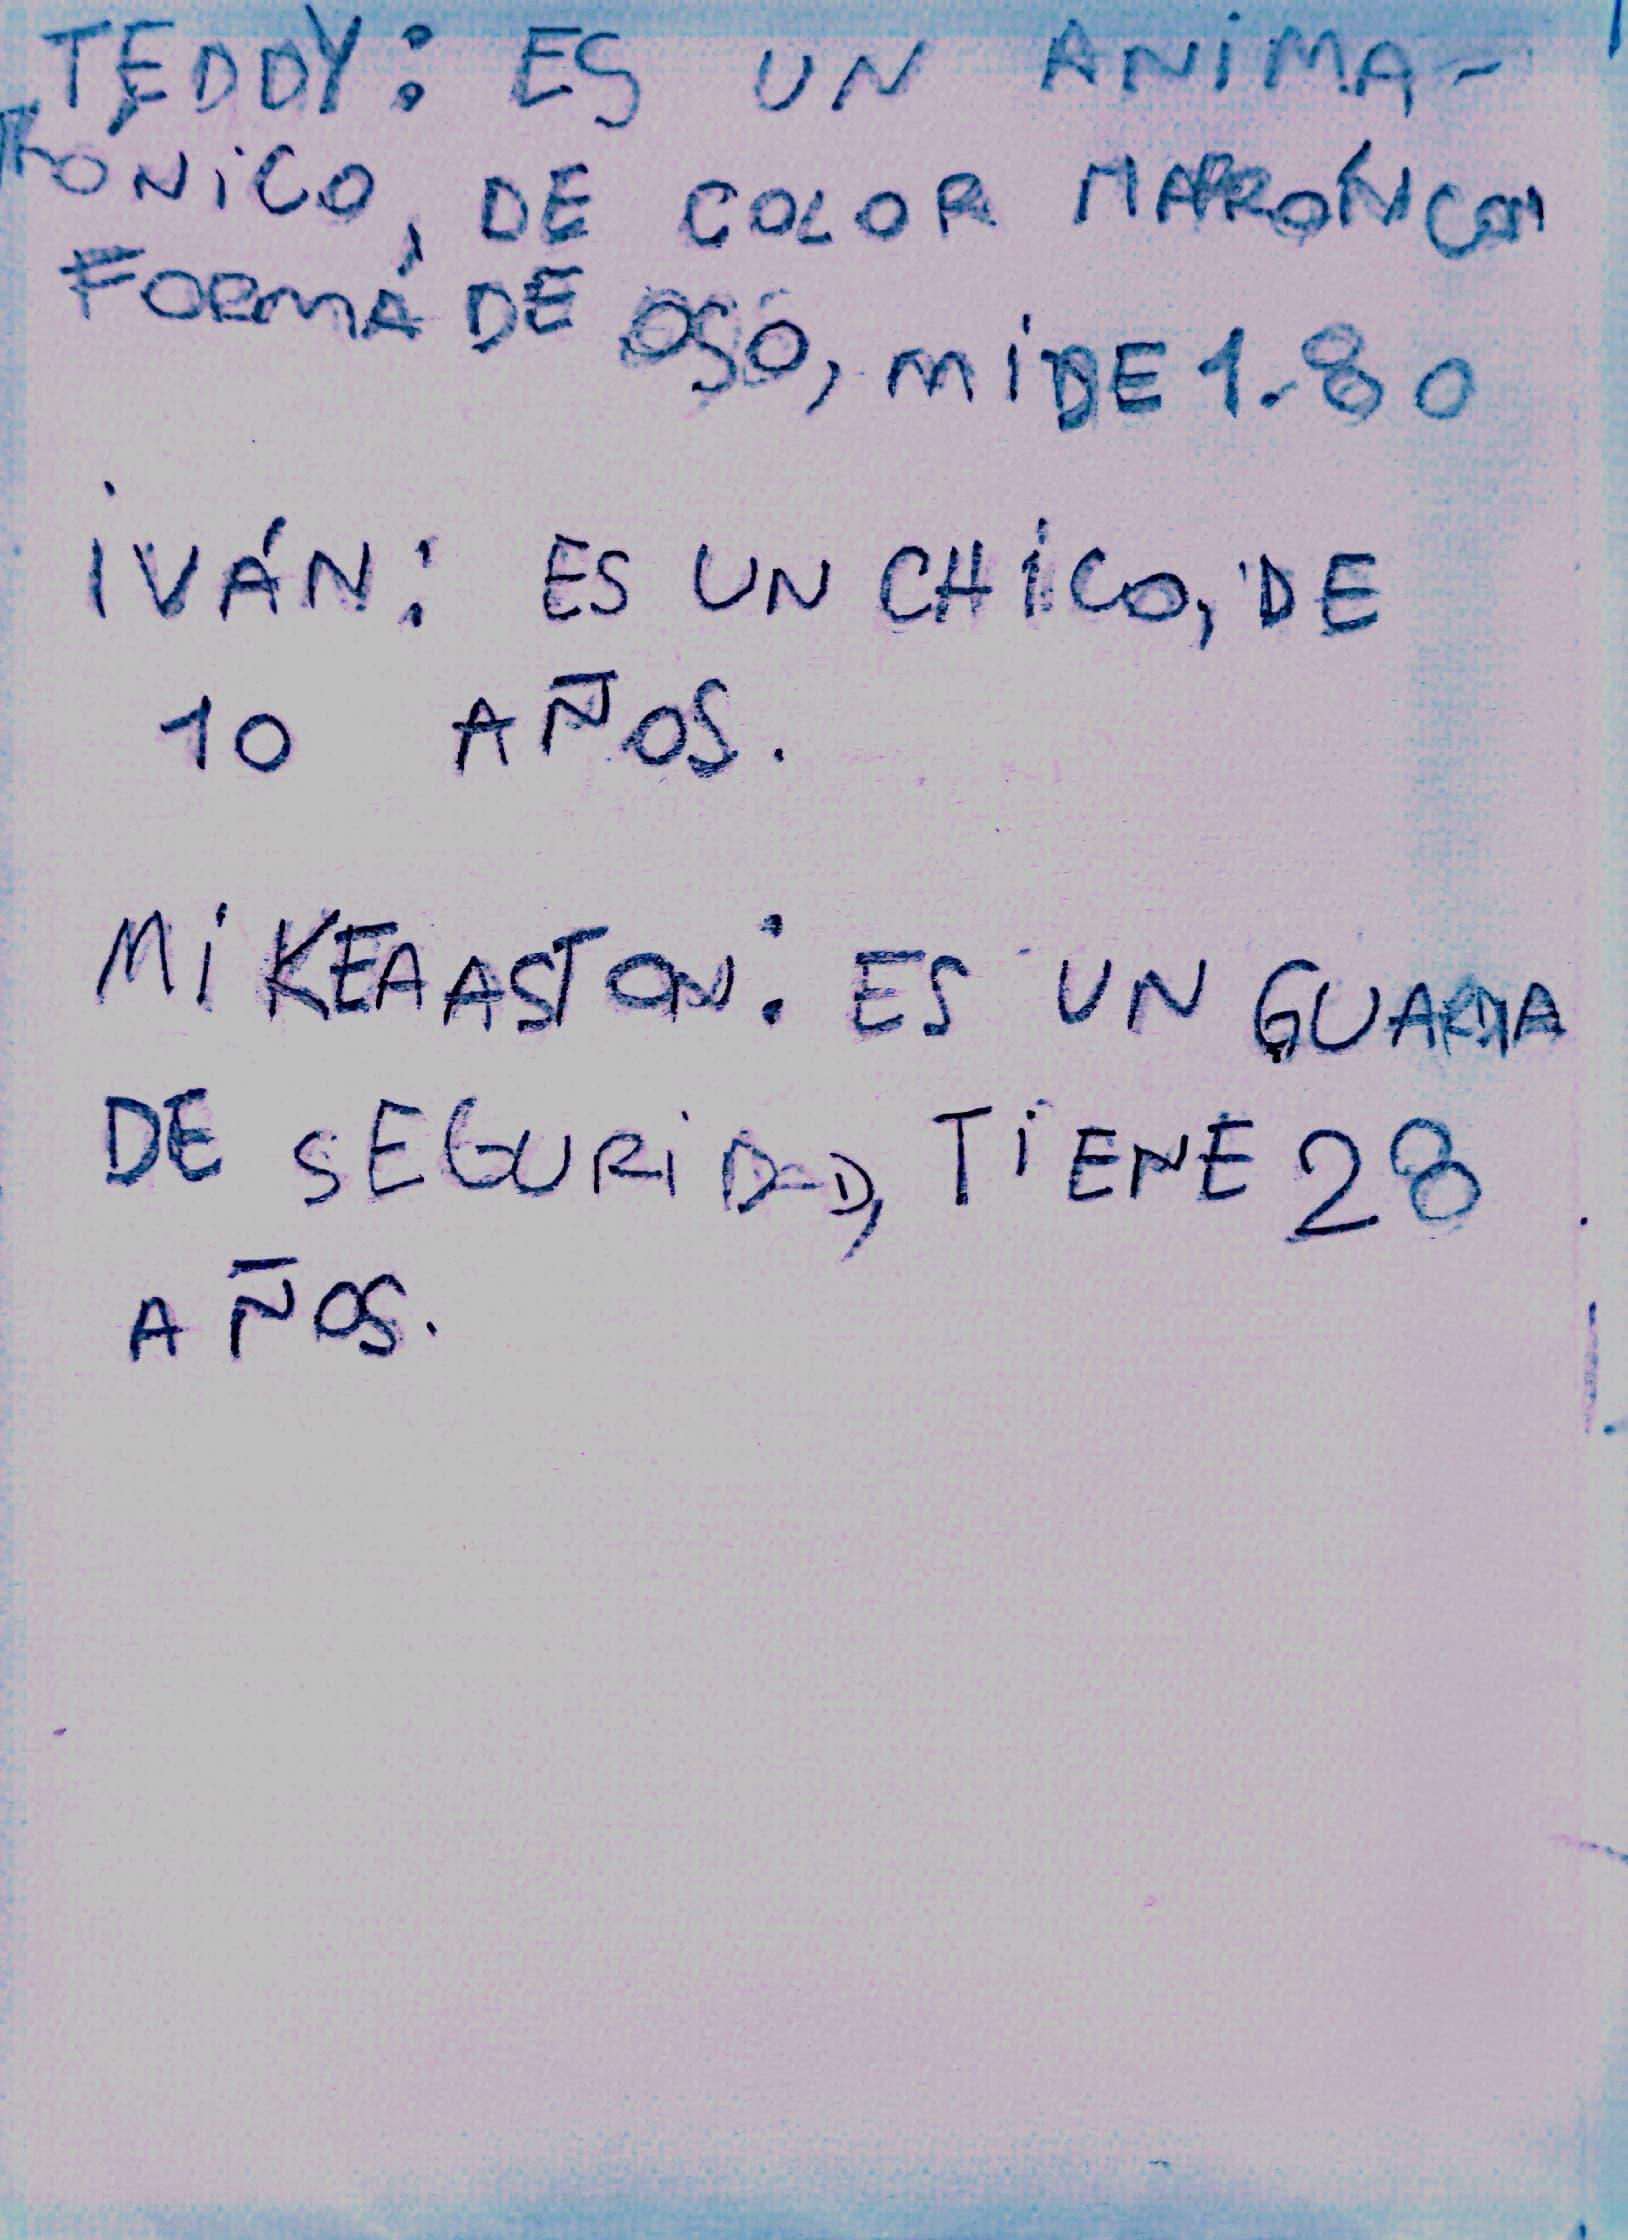 TEDDY: ES UN ANIMA-
TRÓNICO, DE COLOR MARRÓN CON
FORMA DE OSO, MIDE 1.80
IVÁN: ES UN CHICO, DE
10 AÑOS.
MIKEAASTON: ES UN GUARDA
DE SEGURIDAD, TIENE 28
AÑOS.